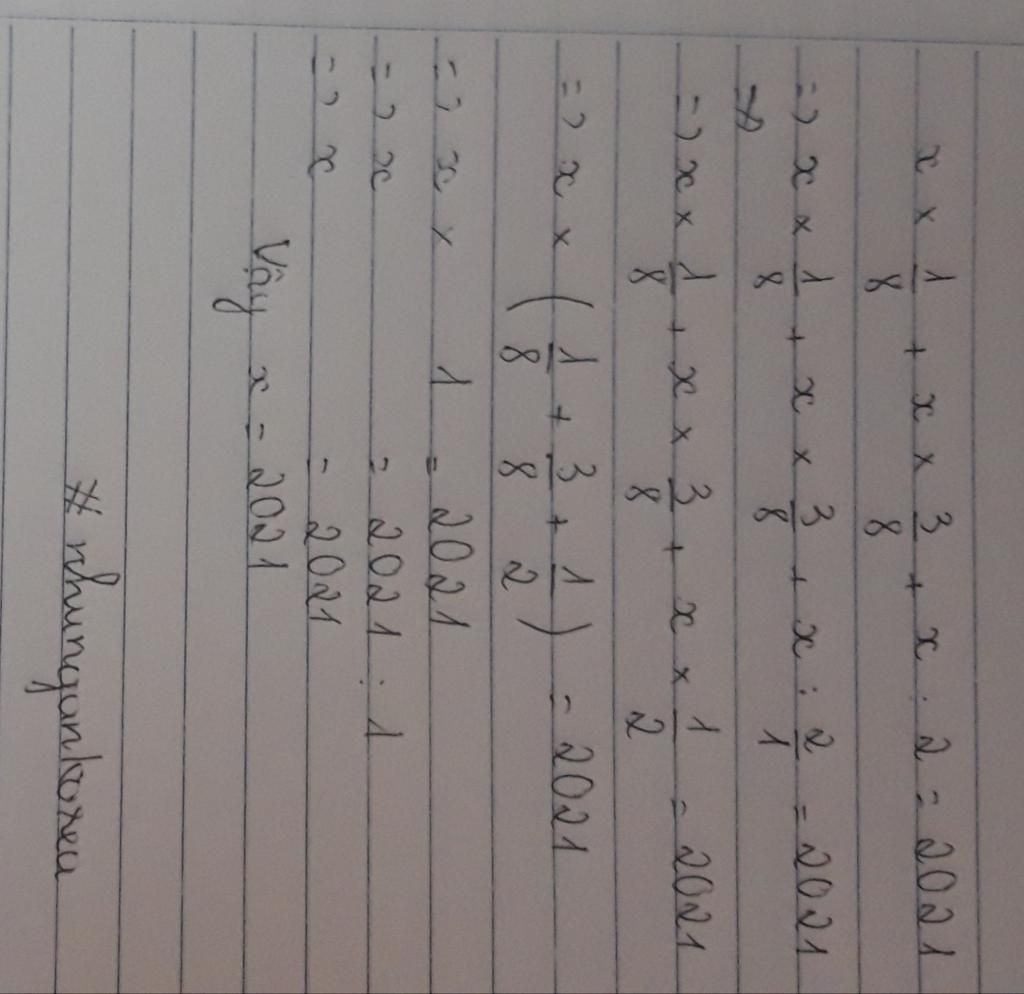 x × 1/8 + x × 3/8 + x : 2 = 2021
=> x × 1/8 + x × 3/8 + x : 2/1 = 2021
=> x × 1/8 + x × 3/8 + x × 1/2 = 2021
=> x × (1/8 + 3/8 + 1/2) = 2021
=> x × 1 = 2021
=> x = 2021 : 1
=> x = 2021
Vậy x = 2021